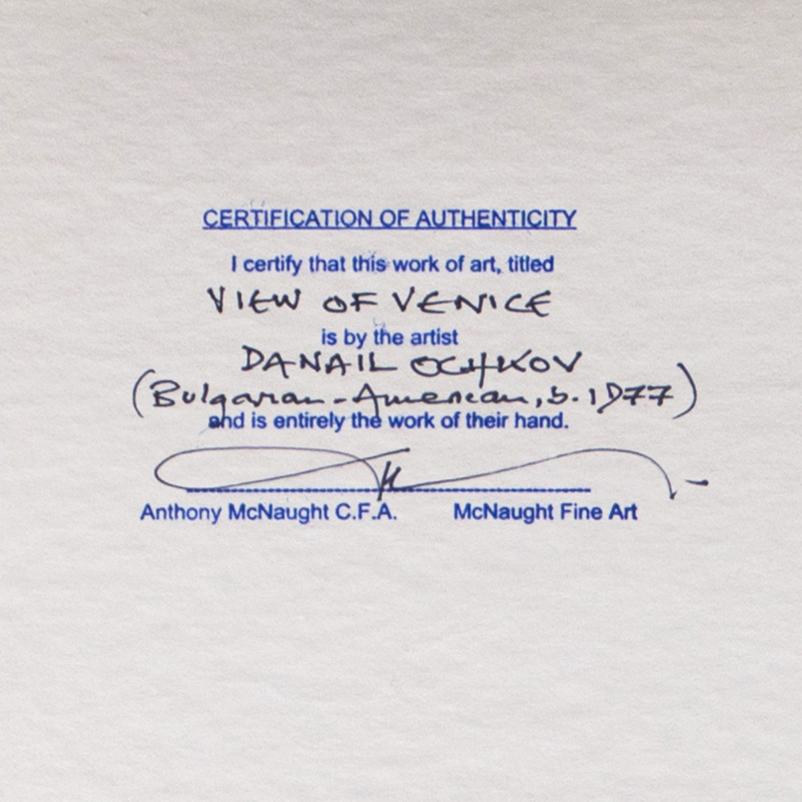 CERTIFICATION OF AUTHENTICITY
I certify that this work of art, titled
VIEW OF VENICE
is by the artist
DANAIL OCHKOV
(Bulgarian-American, b. 1977)
and is entirely the work of their hand.
Anthony McNaught C.F.A. McNaught Fine Art